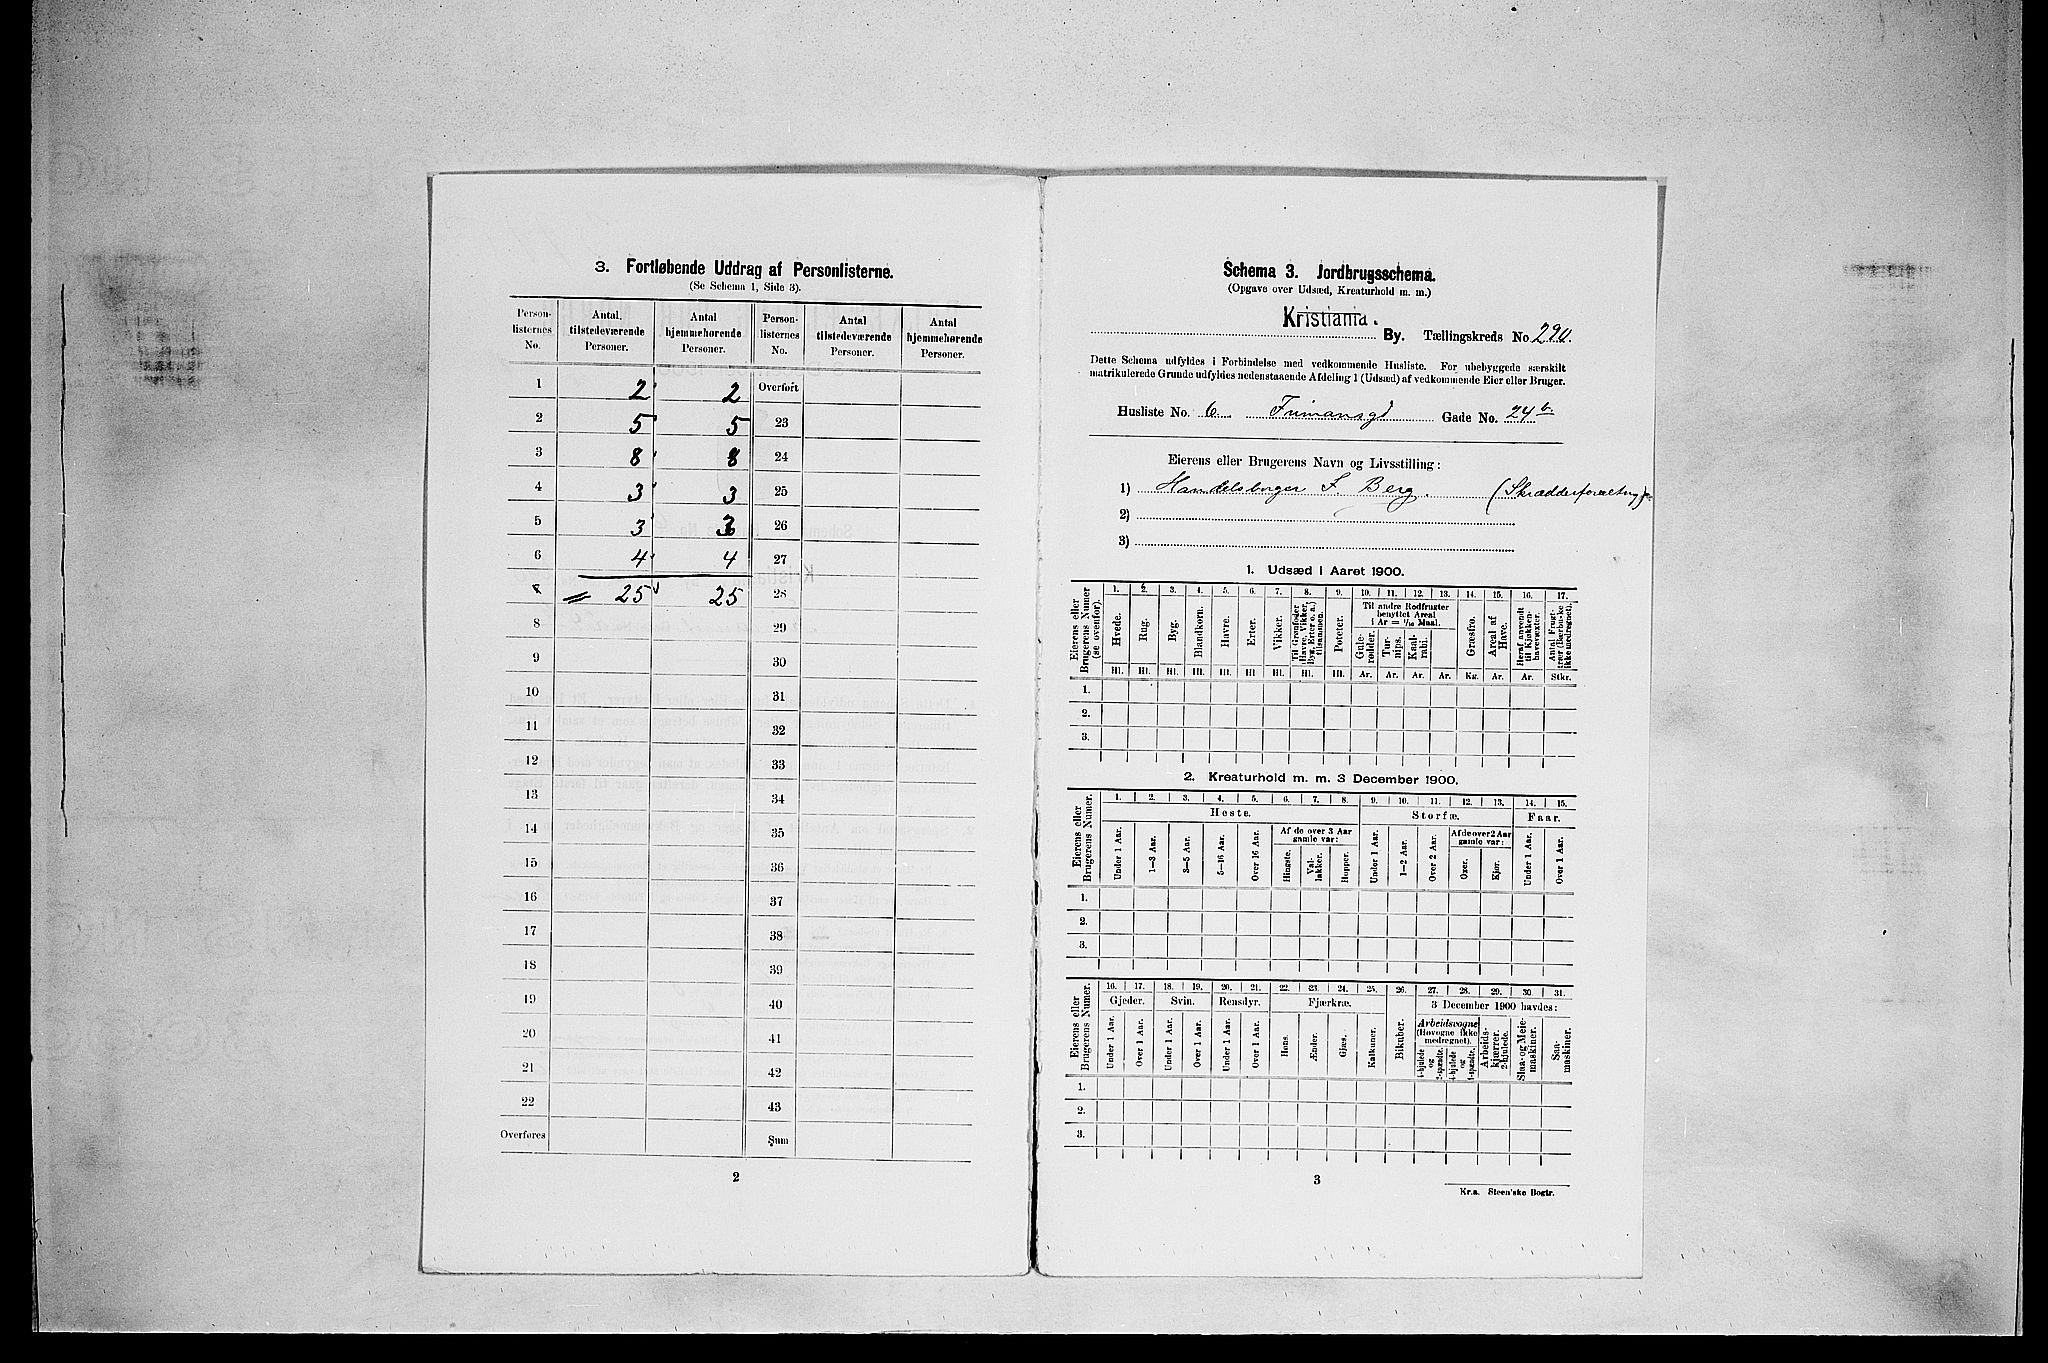 3. Fortløbende Uddrag af Personlisterne.
(Se Schema 1, Side 3).
Person-listernes No. Antal tilstedeværende Personer. Antal hjemmehørende Personer. Person-listernes No. Antal tilstedeværende Personer. Antal hjemmehørende Personer.
1 2 2 Overført
2 5 5 23
3 8 8 24
4 3 3 25
5 3 3 26
6 4 4 27
7 = 25 25 28
8 29
9 30
10 31
11 32
12 33
13 34
14 35
15 36
16 37
17 38
18 39
19 40
20 41
21 42
22 43
Overføres Sum
2
Schema 3. Jordbrugsschema.
(Opgave over Udsæd, Kreaturhold m. m.)
Kristiania. By. Tællingskreds No 290.
Dette Schema udfyldes i Forbindelse med vedkommende Husliste. For ubebyggede særskilt
matrikulerede Grunde udfyldes nedenstaaende Afdeling 1 (Udsæd) af vedkommende Eier eller Bruger.
Husliste No. 6 Frimansgd Gade No. 24 b.
Eierens eller Brugerens Navn og Livsstilling:
1) Handelsborger S. Berg. (Skrædderforretng)
2)
3)
1. Udsæd i Aaret 1900.
Eierens eller Brugerens Numer (se ovenfor).
1. 2. 3. 4. 5. 6. 7. 8. 9. 10. 11. 12. 13. 14. 15. 16. 17.
Hvede. Rug. Byg. Blandkorn. Havre. Erter. Vikker. Til Grønfoder Havre, Vikker, Byg, Erter o. a.) tilsammen. Poteter. Til andre Rodfrugter benyttet Areal i Ar = 1/10 Maal. Gule-rødder. Tur-nips. Kaal-rabi. Græsfrø. Areal af Have. Heraf anvendt til Kjøkken-havevæxter. Antal Frugt-trær (Bærbuske ikke medregnet).
Hl. Hl. Hl. Hl. Hl. Hl Hl. Hl. Hl. Ar. Ar. Ar. Ar. Kg. Ar. Ar. Stkr.
1.
2.
3.
2. Kreaturhold m. m. 3 December 1900.
Eierens eller Brugerens Numer.
1. 2. 3. 4. 5. 6. 7. 8. 9. 10. 11. 12. 13. 14. 15.
Heste. Storfæ. Faar.
Under 1 Aar. 1—3 Aar. 3—5 Aar. 5—16 Aar. Over 16 Aar. Af de over 3 Aar gamle var: Hingste. Val-lakker. Hopper. Under 1 Aar. 1—2 Aar. Over 2 Aar. Af de over 2 Aar gamle var: Oxer. Kjør. Under 1 Aar. Over 1 Aar.
1.
2.
3.
Eierens eller Brugerens Numer.
16. 17. 18. 19. 20. 21. 22. 23. 24. 25. 26. 27. 28. 29. 30. 31.
Gjeder. Svin. Rensdyr. Fjærkræ. Bikuber. 3 December 1900 havdes:
Under 1 Aar. Over 1 Aar. Under 1 Aar. Over 1 Aar. Under 1 Aar. Over 1 Aar. Høns. Ænder. Gjæs. Kalkuner. Arbeidsvogne (Hovogne ikke medregnet). 4-hjulede og 2-spændte. 4-hjulede og 1-spændte. Arbeids-kjærrer. 2-hjulede. Slaa- og Meie-maskiner. Saa-maskiner.
1.
2.
3.
3
Kr.a. Steen'ske Bogtr.